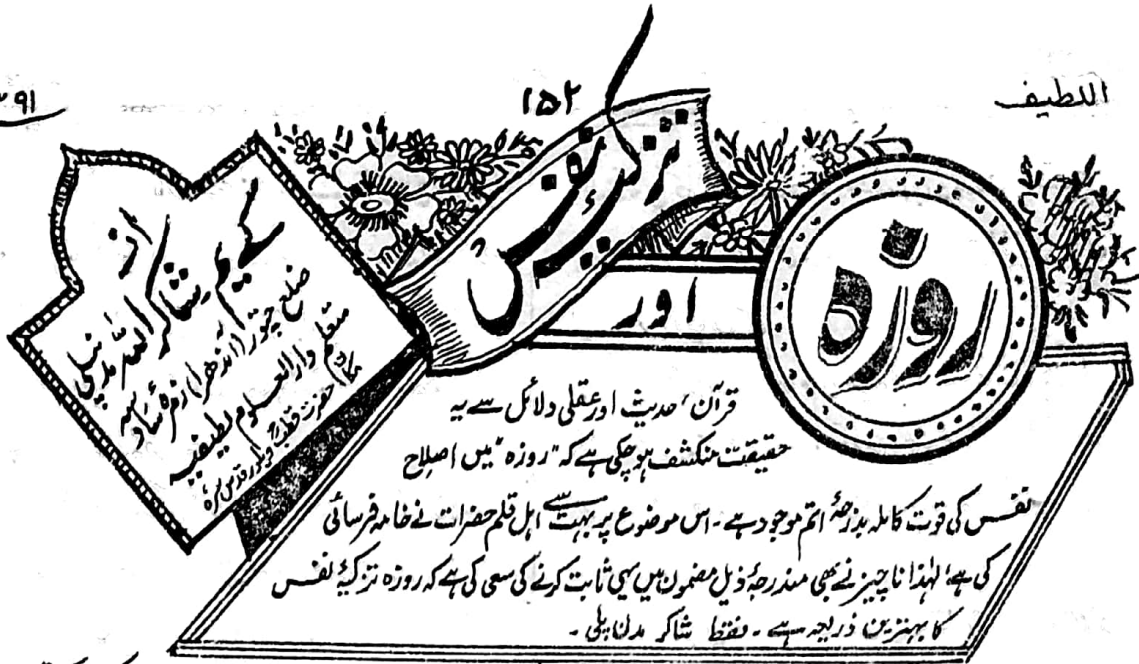 اللطیف
۱۵۲
۹۱
روزہ
اور
تزکیۂ نفس
از
کے یم شاکر اللہ مدنپلی
ضلع چتور (آندھرا) زمرۂ سادسہ
متعلم دار العلوم لطیفیہ
مکان حضرت قطب ویلور قدس سرہٗ
قرآن، حدیث اور عقلی دلائل سے یہ
حقیقت منکشف ہوچکی ہے کہ "روزہ" میں اصلاح
نفس کی قوت کاملہ بدرجۂ اتم موجود ہے۔ اس موضوع پر بہت سے اہل قلم حضرات نے خامہ فرسائی
کی ہے، لہٰذا ناچیز نے بھی مندرجۂ ذیل مضمون میں یہی ثابت کرنے کی سعی کی ہے کہ روزہ تزکیۂ نفس
کا بہترین ذریعہ ہے۔ فقط شاکر مدناپلی۔